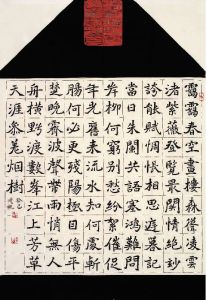 靄靄春空畫樓森聳凌雲
渚紫薇登覽最關情絕妙
誇能賦惆悵相思遲暮記
當日朱闌共語塞鴻難問
岸柳何窮別愁紛絮催促
年光舊來流水知何處斷
腸何必更殘陽極目傷平
楚晚霽波聲帶雨悄無人
舟橫野渡數峯江上芳草
天涯參差煙樹